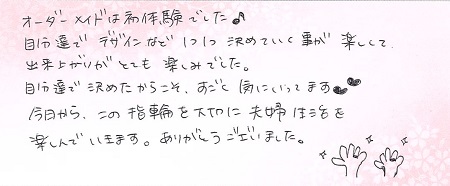 オーダーメイドは初体験でした♪
自分達でデザインなど1つ1つ決めていく事が楽しくて、
出来上がりがとても楽しみでした。
自分達で決めたからこそ、すごく気にいってます
今日から、この指輪を大切に夫婦生活を
楽しんでいきます。ありがとうございました。